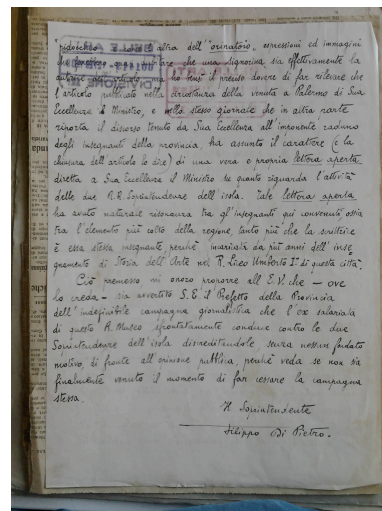 "pidocchio" l'altra dell' "orinatoio", espressioni ed immagini
che una Signorina sia effettivamente la
autrice dell'articolo, ma ho sensi il preciso dovere di far rilevare che
l'articolo pubblicato nella circostanza della venuta a Palermo di Sua
Eccellenza il Ministro, e nello stesso giornale che in altra parte
riporta il discorso tenuto da Sua Eccellenza all'imponente raduno
degli insegnanti della provincia, ha assunto il carattere (e la
chiusura dell'articolo lo dice) di una vera e propria lettera aperta
diretta a Sua Eccellenza il Ministro in quanto riguarda l'attività
delle due R.R. Soprintendenze dell'isola. Tale lettera aperta
ha avuto naturale risonanza tra gli insegnanti qui convenuti ossia
fra l'elemento più colto della regione, tanto più che la scrittrice
è essa stessa insegnante perché incaricata da più anni dell'inse
gnamento di Storia dell'Arte nel R. Liceo Umberto I° di questa città.
Ciò premesso mi onoro proporre all'E.V. che - ove
lo creda - sia avvertito S.E. il Prefetto della Provincia
dell'indefinibile campagna giornalistica che l'ex salariata
di questo R. Museo sfrontatamente conduce contro le due
Soprintendenze dell'isola discreditandole, senza nessun fondato
motivo, di fronte all'opinione pubblica, perché veda se non sia
finalmente venuto il momento di far cessare la campagna
stessa.
Il Soprintendente
Filippo Di Pietro.